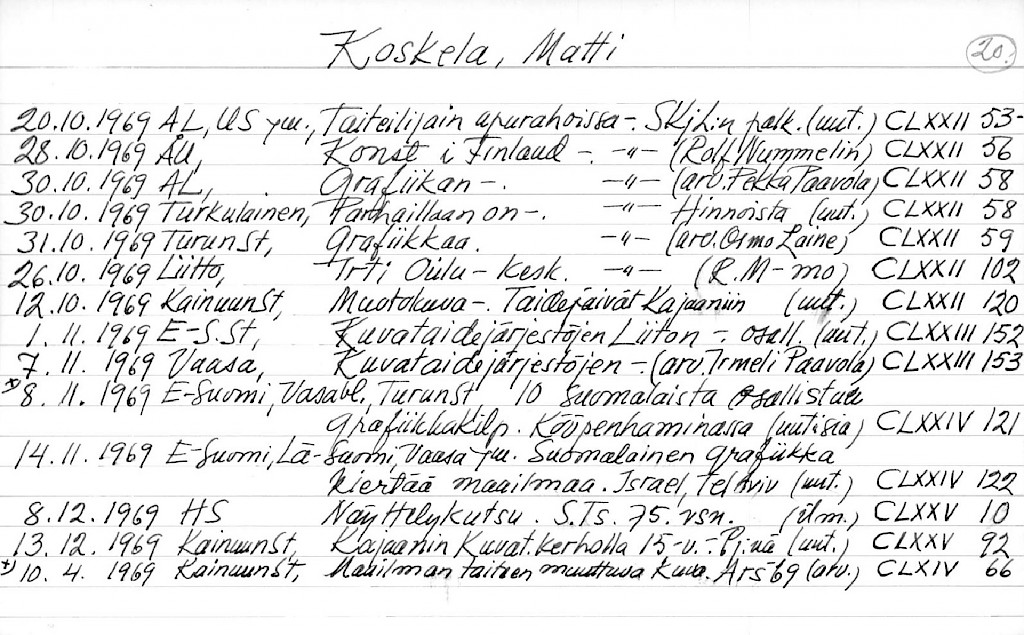 Koskela, Matti 20.
20.10.1969 AL, US ym., Taiteilijain apurahoissa-. SKjL:n palk. (uut.) CLXXII 53-
28.10.1969 ÅU, Konst i Finland -. -"- (Rolf Nummelin) CLXXII 56
30.10.1969 AL, Grafiikan -. -"- (arv. Pekka Paavola) CLXXII 58
30.10.1969 Turkulainen, Parhaillaan on -. -"- Hinnoista (uut.) CLXXII 58
31.10.1969 TurunSt, Grafiikkaa. -"- (arv. Osmo Laine) CLXXII 59
26.10.1969 Liitto, Irti Oulu-kesk. -"- (R.M-mo) CLXXII 102
12.10.1969 KainuunSt, Muotokuva-. Taidepäivät Kajaaniin (uut.) CLXXII 120
1.11.1969 E-S.St, Kuvataidejärjestöjen Liiton -. osall. (uut.) CLXXIII 152
7.11.1969 Vaasa, Kuvataidejärjestöjen -. (arv. Irmeli Paavola) CLXXIII 153
x) 8.11.1969 E-Suomi, Vasabl., TurunSt 10 suomalaista osallistuu
grafiikkakilp. Kööpenhaminassa (uutisia) CLXXIV 121
14.11.1969 E-Suomi, Lä-Suomi, Vaasa ym. Suomalainen grafiikka
kiertää maailmaa. Israel, Tel Aviv (uut.) CLXXIV 122
8.12.1969 HS Näyttelykutsu. S.Ts. 75.vsn. (ilm.) CLXXV 10
13.12.1969 KainuunSt, Kajaanin Kuvat.kerholla 15-v. -. Pj.nä (uut.) CLXXV 92
x) 10.4.1969 KainuunSt, Maailman taiteen muuttuva kuva. Ars-69 (arv.) CLXIV 66